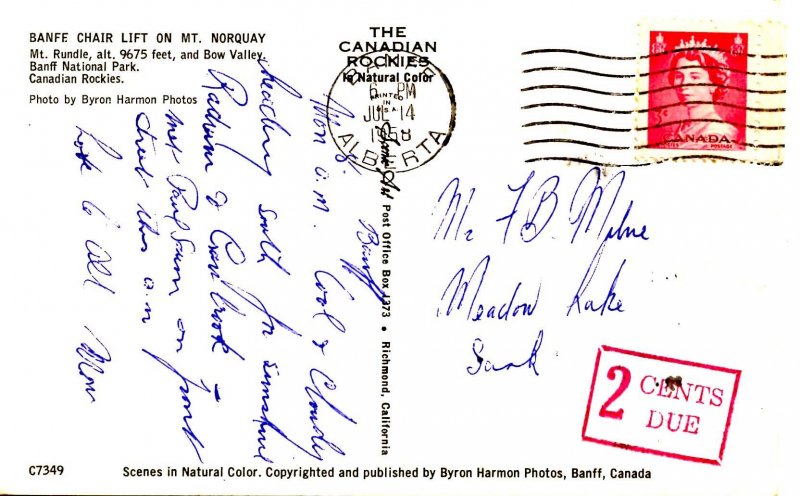 BANFF CHAIR LIFT ON MT. NORQUAY
Mt. Rundle, alt. 9675 feet, and Bow Valley,
Banff National Park.
Canadian Rockies.
Photo by Byron Harmon Photos
THE
CANADIAN
ROCKIES
in Natural Color
PRINTED
IN
U.S.A.
6 PM
JUL 14
1958
ALBERTA
3¢
CANADA
POSTES POSTAGE
Banff
Mon a.m. Cool & Cloudy
heading south for sunshine
Radium & Cranbrook –
met Paul on front
street this a.m
Love to all Mom
Post Office Box 1373 • Richmond, California
Mr F. B. Milne
Meadow Lake
Sask
2 CENTS
DUE
C7349
Scenes in Natural Color. Copyrighted and published by Byron Harmon Photos, Banff, Canada